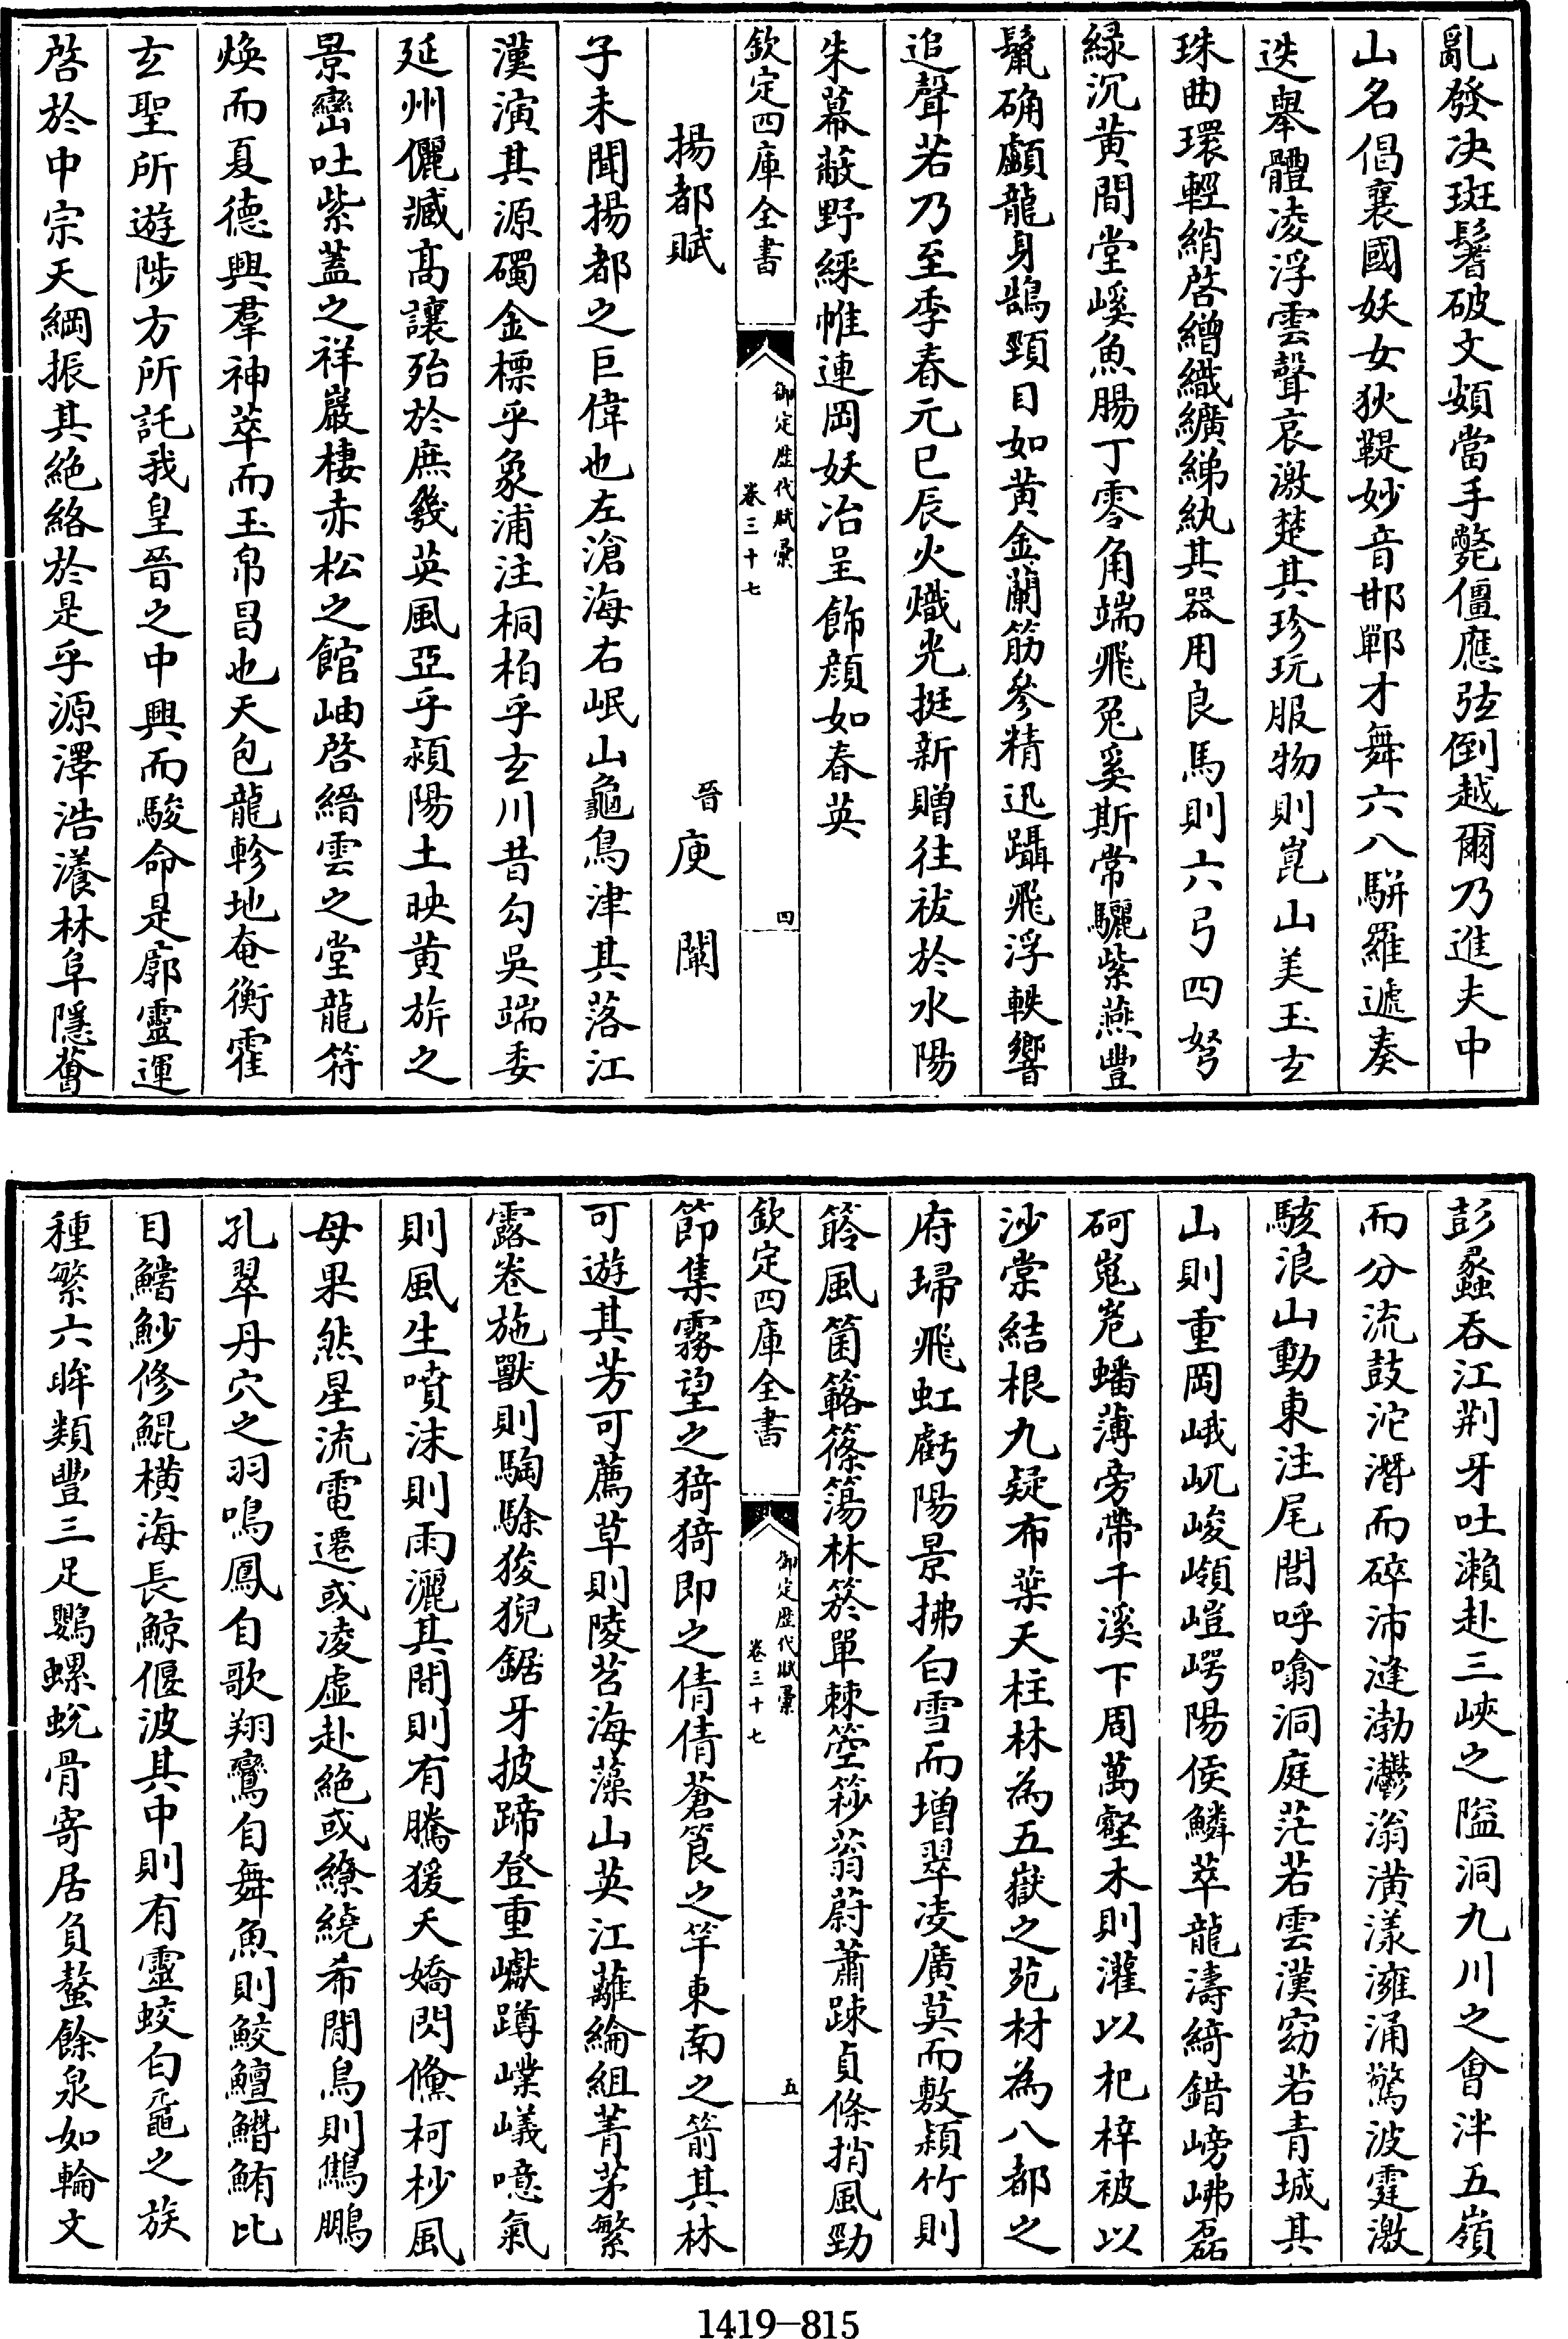 亂發决斑鬐破文頗當手斃僵應弦倒越爾乃進夫中
山名倡襄國妖女狄鞮妙音邯鄲才舞六八駢羅遞奏
迭舉體凌浮雲聲哀激楚其珍玩服物則崑山美玉玄
珠曲環輕綃啓繒織纊綈紈其器用良馬則六弓四弩
緑沉黄間堂嵠魚腸丁零角端飛兔奚斯常驪紫燕豐
鬛确顱龍身鵠頸目如黄金蘭筋參精迅躡飛浮軼響
追聲若乃至季春元巳辰火熾光挺新贈往祓於水陽
朱幕蔽野綵帷連岡妖冶呈飾顔如春英
欽定四庫全書
御定歷代賦彙
卷三十七
四
揚都賦
晉庾闡
子未聞揚都之巨偉也左滄海右岷山龜鳥津其落江
漢演其源碣金標乎象浦注桐柏乎玄川昔勾吳端委
延州儷臧高讓殆於庶幾英風亞乎潁陽土映黄旂之
景巒吐紫蓋之祥巖棲赤松之館岫啓縉雲之堂龍符
煥而夏德興羣神萃而玉帛昌也天包龍軫地奄衡霍
玄聖所遊陟方所託我皇晉之中興而駿命是廓靈運
啓於中宗天綱振其絶絡於是乎源澤浩瀁林阜隱薈
彭蠡吞江荆牙吐瀨赴三峽之隘洞九川之會泮五嶺
而分流鼓沱潛而碎沛漨渤灪滃潢漾澭涌驚波霆激
駭浪山動東注尾閭呼噏洞庭茫若雲漢窈若青城其
山則重岡峨屼峻嶺嵦崿陽侯鱗萃龍濤綺錯嵭岪磊
砢嵬嵬蟠薄旁帶千溪下周萬壑木則灌以杞梓被以
沙棠結根九疑布葉天柱林為五嶽之苑材為八都之
府埽飛虹虧陽景拂白雪而增翠凌廣莫而敷潁竹則
笭風箘簵篠簜林箊單棘箜𥮪蓊蔚蕭疎貞條捎風勁
欽定四庫全書
御定歷代賦彙
卷三十七
五
節集霧望之猗猗即之倩倩蒼筤之竿東南之箭其林
可遊其芳可薦草則陵苕海藻山英江蘺綸組菁茅繁
露卷施獸則騊駼狻猊鋸牙披蹄登重巘蹲㠎嶬噫氣
則風生噴沫則雨灑其間則有騰猨夭嬌閃儵柯杪風
母果然星流電遷或凌虚赴絶或繚繞希閒鳥則鷦鵬
孔翠丹穴之羽鳴鳳自歌翔鸞自舞魚則鮫鱣鰌鮪比
目鱛魦修鯤橫海長鯨偃波其中則有靈蛟白黿之族
種繁六眸類豐三足鸚螺蛻骨寄居負螯餘泉如輪文
1419–815